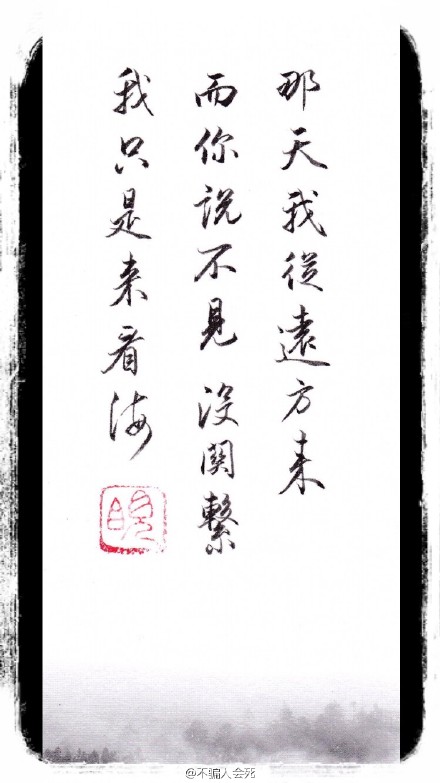 那天我從遠方来
而你说不見 没関繫
我只是来看海
晚
@不骗人会死